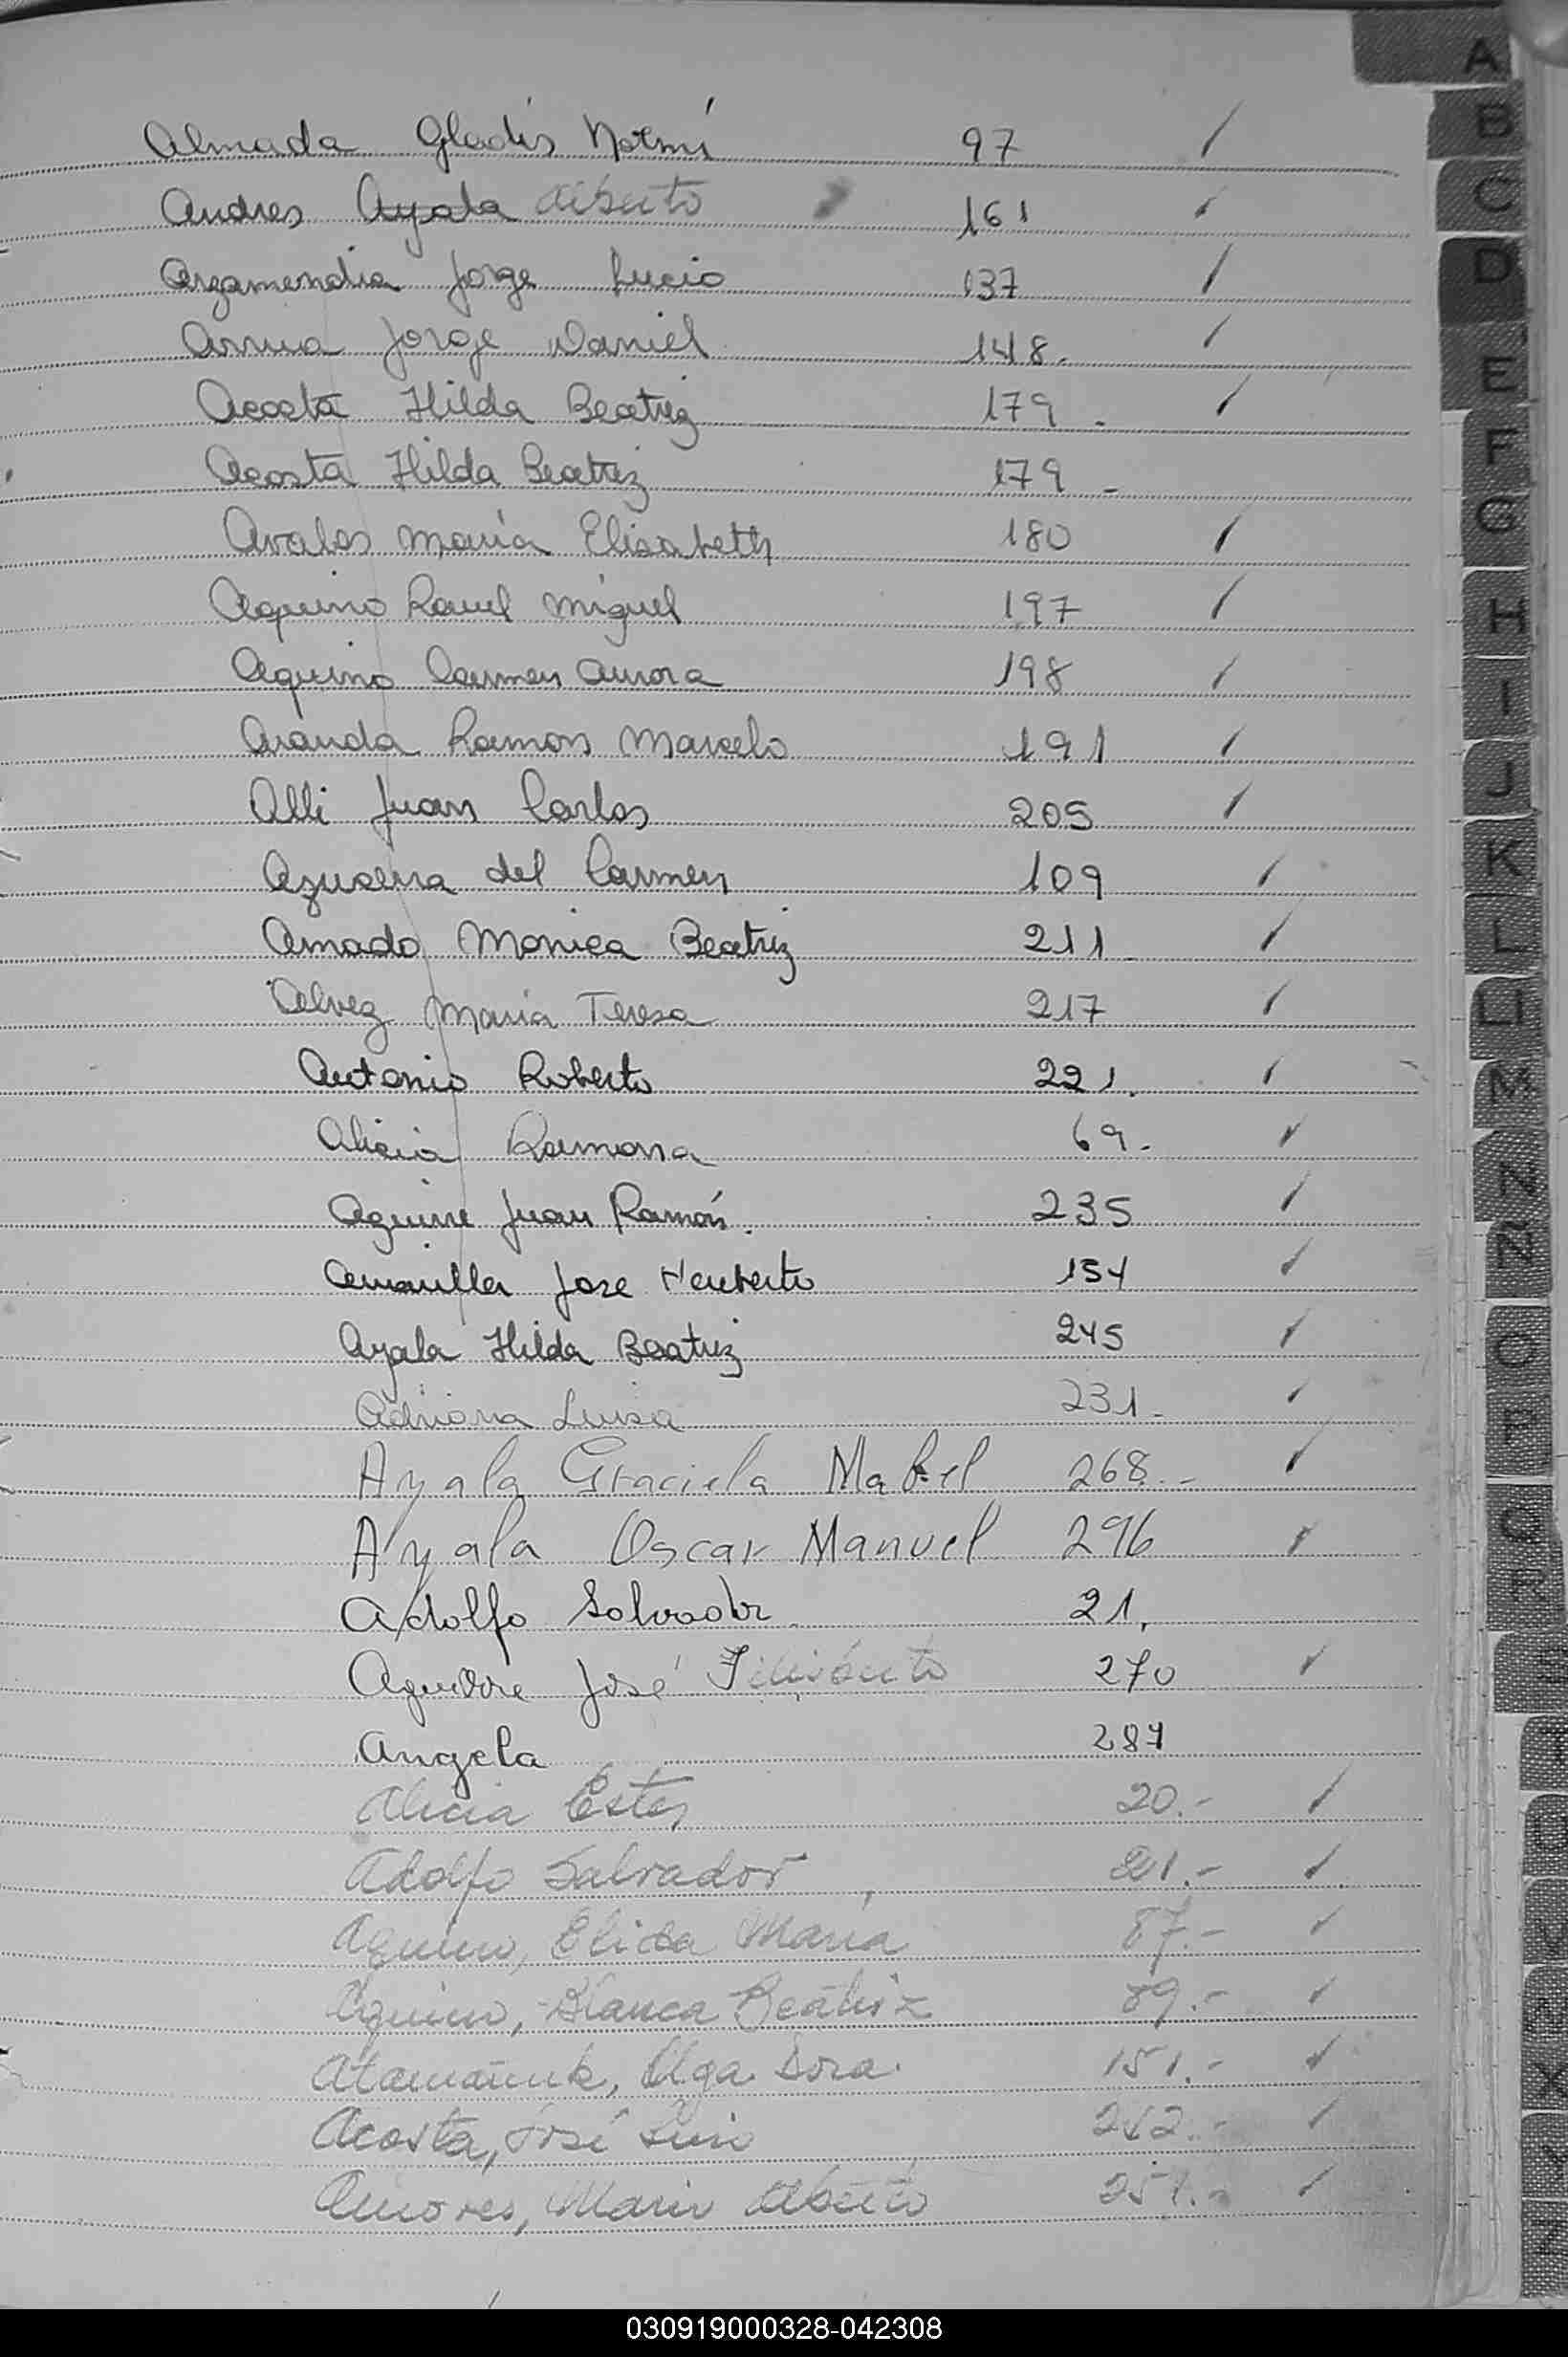 Almada Gladis Noemí 97 /
Andres Ayala Alberto 161 /
Arzamendia Jorge Lucio 137 /
Arrua Jorge Daniel 148. /
Acosta Hilda Beatriz 179 - /
Acosta Hilda Beatriz 179 -
Avalos María Elisabeth 180 /
Aquino Raul Miguel 197 /
Aquino Carmen Aurora 198 /
Aranda Ramon Marcelo 191 /
Alli Juan Carlos 205 /
Azucena del Carmen 109 /
Amado Monica Beatriz 211 /
Alvez María Teresa 217 /
Antonio Roberto 221. /
Alicia Ramona 69.- /
Aguirre Juan Ramón. 235 /
Amarilla Jose Heriberto 154 /
Ayala Hilda Beatriz 245 /
Adriana Luisa 231.- /
Ayala Graciela Mabel 268.- /
Ayala Oscar Manuel 296 /
Adolfo Salvador 21.
Aguirre José 270 /
Angela 287
Alicia Ester 20.- /
Adolfo Salvador 21.- /
Aquino, Elida María 87.- /
Aquino, Blanca Beatriz 89.- /
Atamañuk, Olga Dora. 151.- /
Acosta, José Luis /
Amores, Mario Alberto 251.- /
A
B
C
D
E
F
G
H
I
J
K
L
LL
M
N
Ñ
O
P
Q
R
S
T
U
V
W
X
Y
Z
030919000328-042308